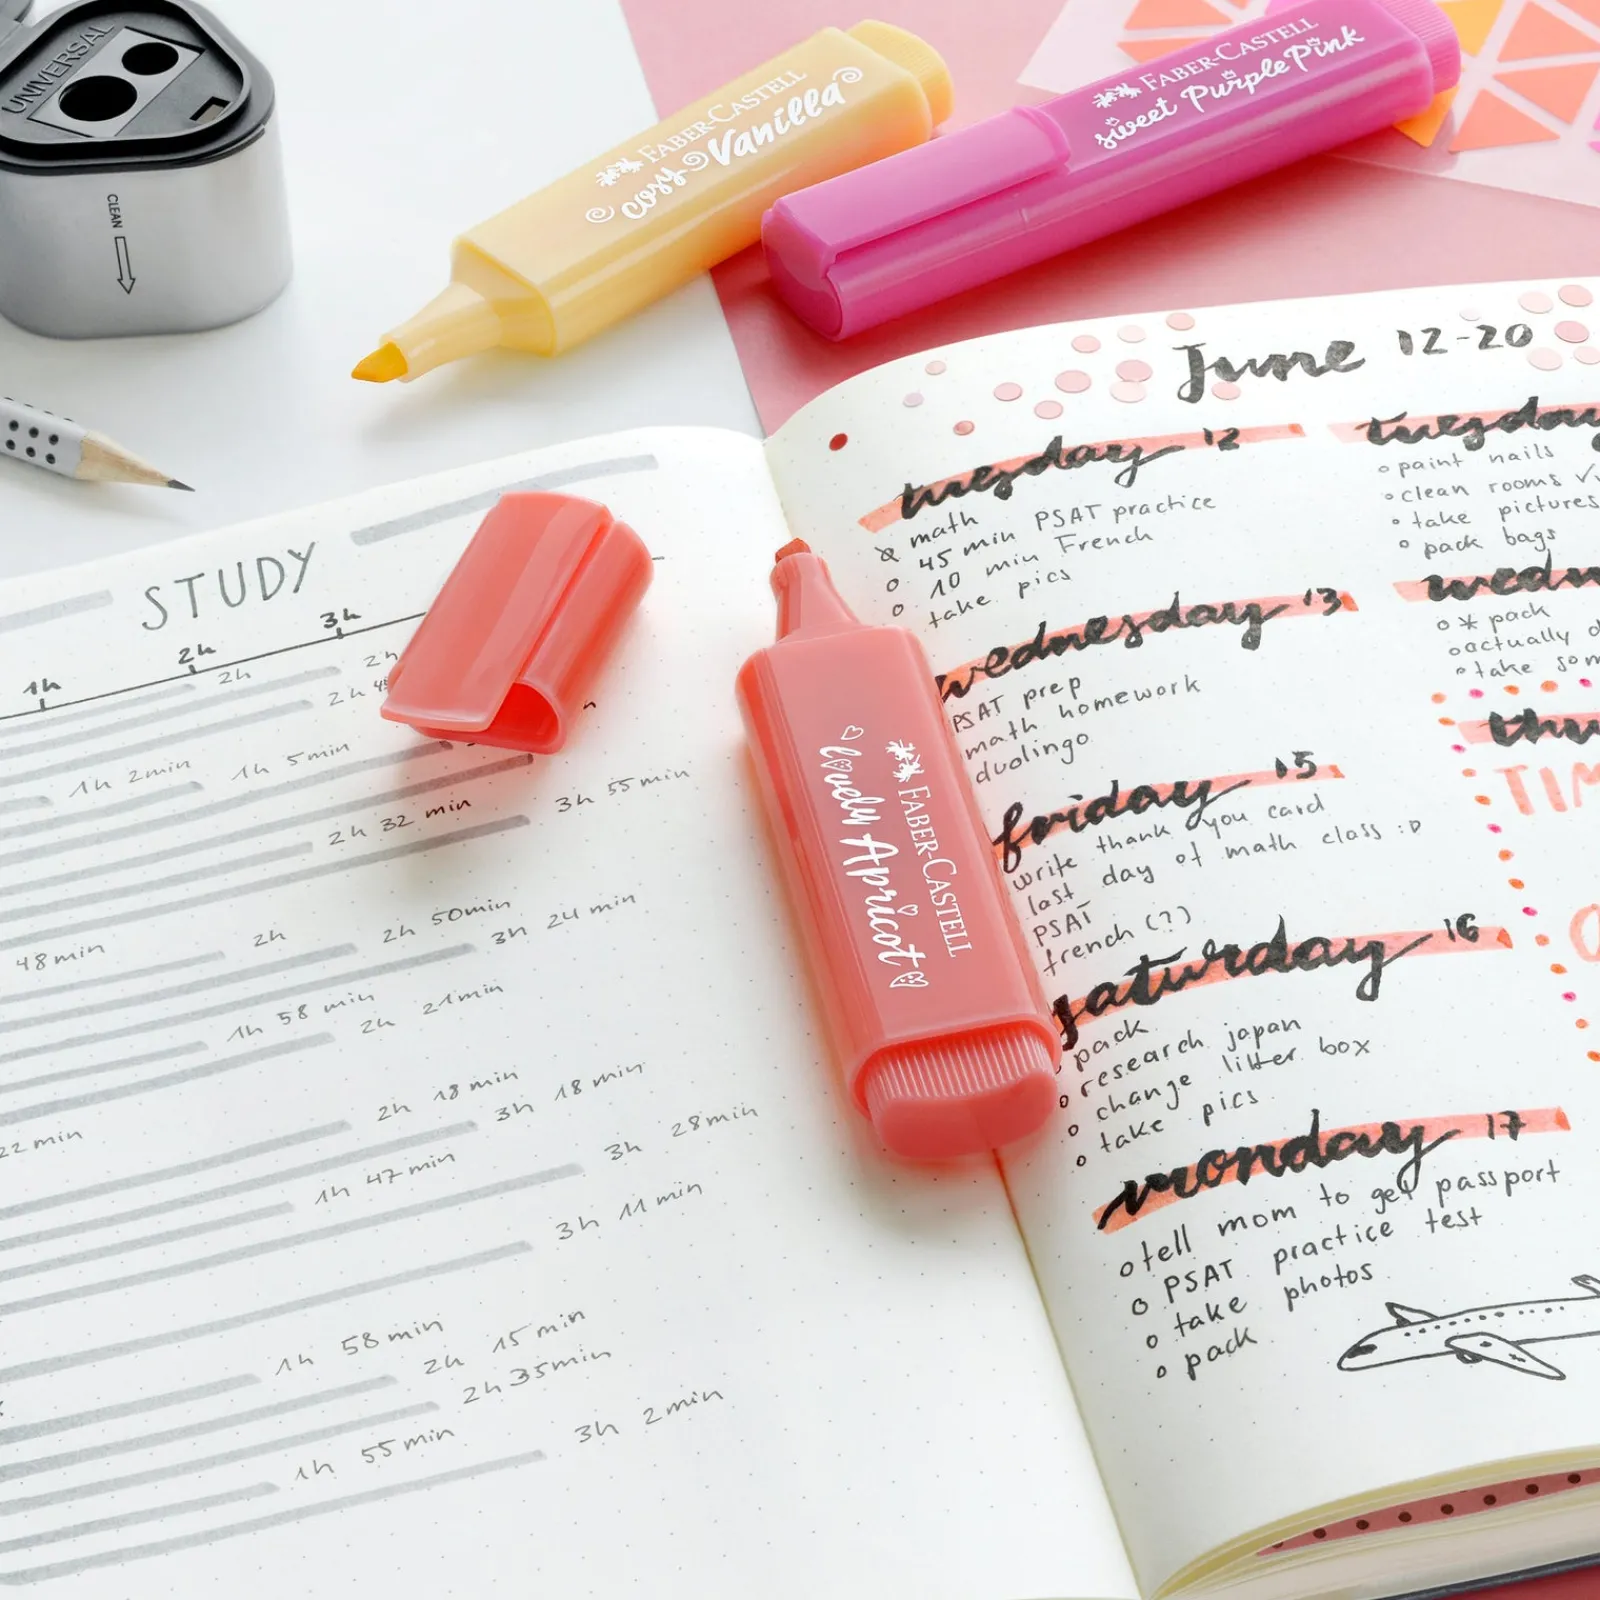 UNIVERSAL
CLEAN
FABER-CASTELL
cosy Vanilla
FABER-CASTELL
sweet Purple Pink
FABER-CASTELL
lovely Apricot
STUDY
1h 2h 3h
2h
2h
2h
1h 2min
1h 5min
2h 32 min
3h 55 min
48min
2h
2h 50min
3h 24 min
1h 58 min
2h 21min
2h 18 min
3h 18 min
22 min
1h 47min
3h 28min
3h 11 min
1h 58 min
2h 15 min
2h 35min
1h 55 min
3h 2min
June 12-20
tuesday 12
math
45 min PSAT practice
10 min French
take pics
wednesday 13
PSAT prep
math homework
duolingo
friday 15
write thank you card
last day of math class :D
PSAT
french (?)
saturday 16
pack
research japan
change litter box
take pics
monday 17
tell mom to get passport
PSAT practice test
take photos
pack
tuesday
paint nails
clean rooms
take pictures
pack bags
* pack
actually
take